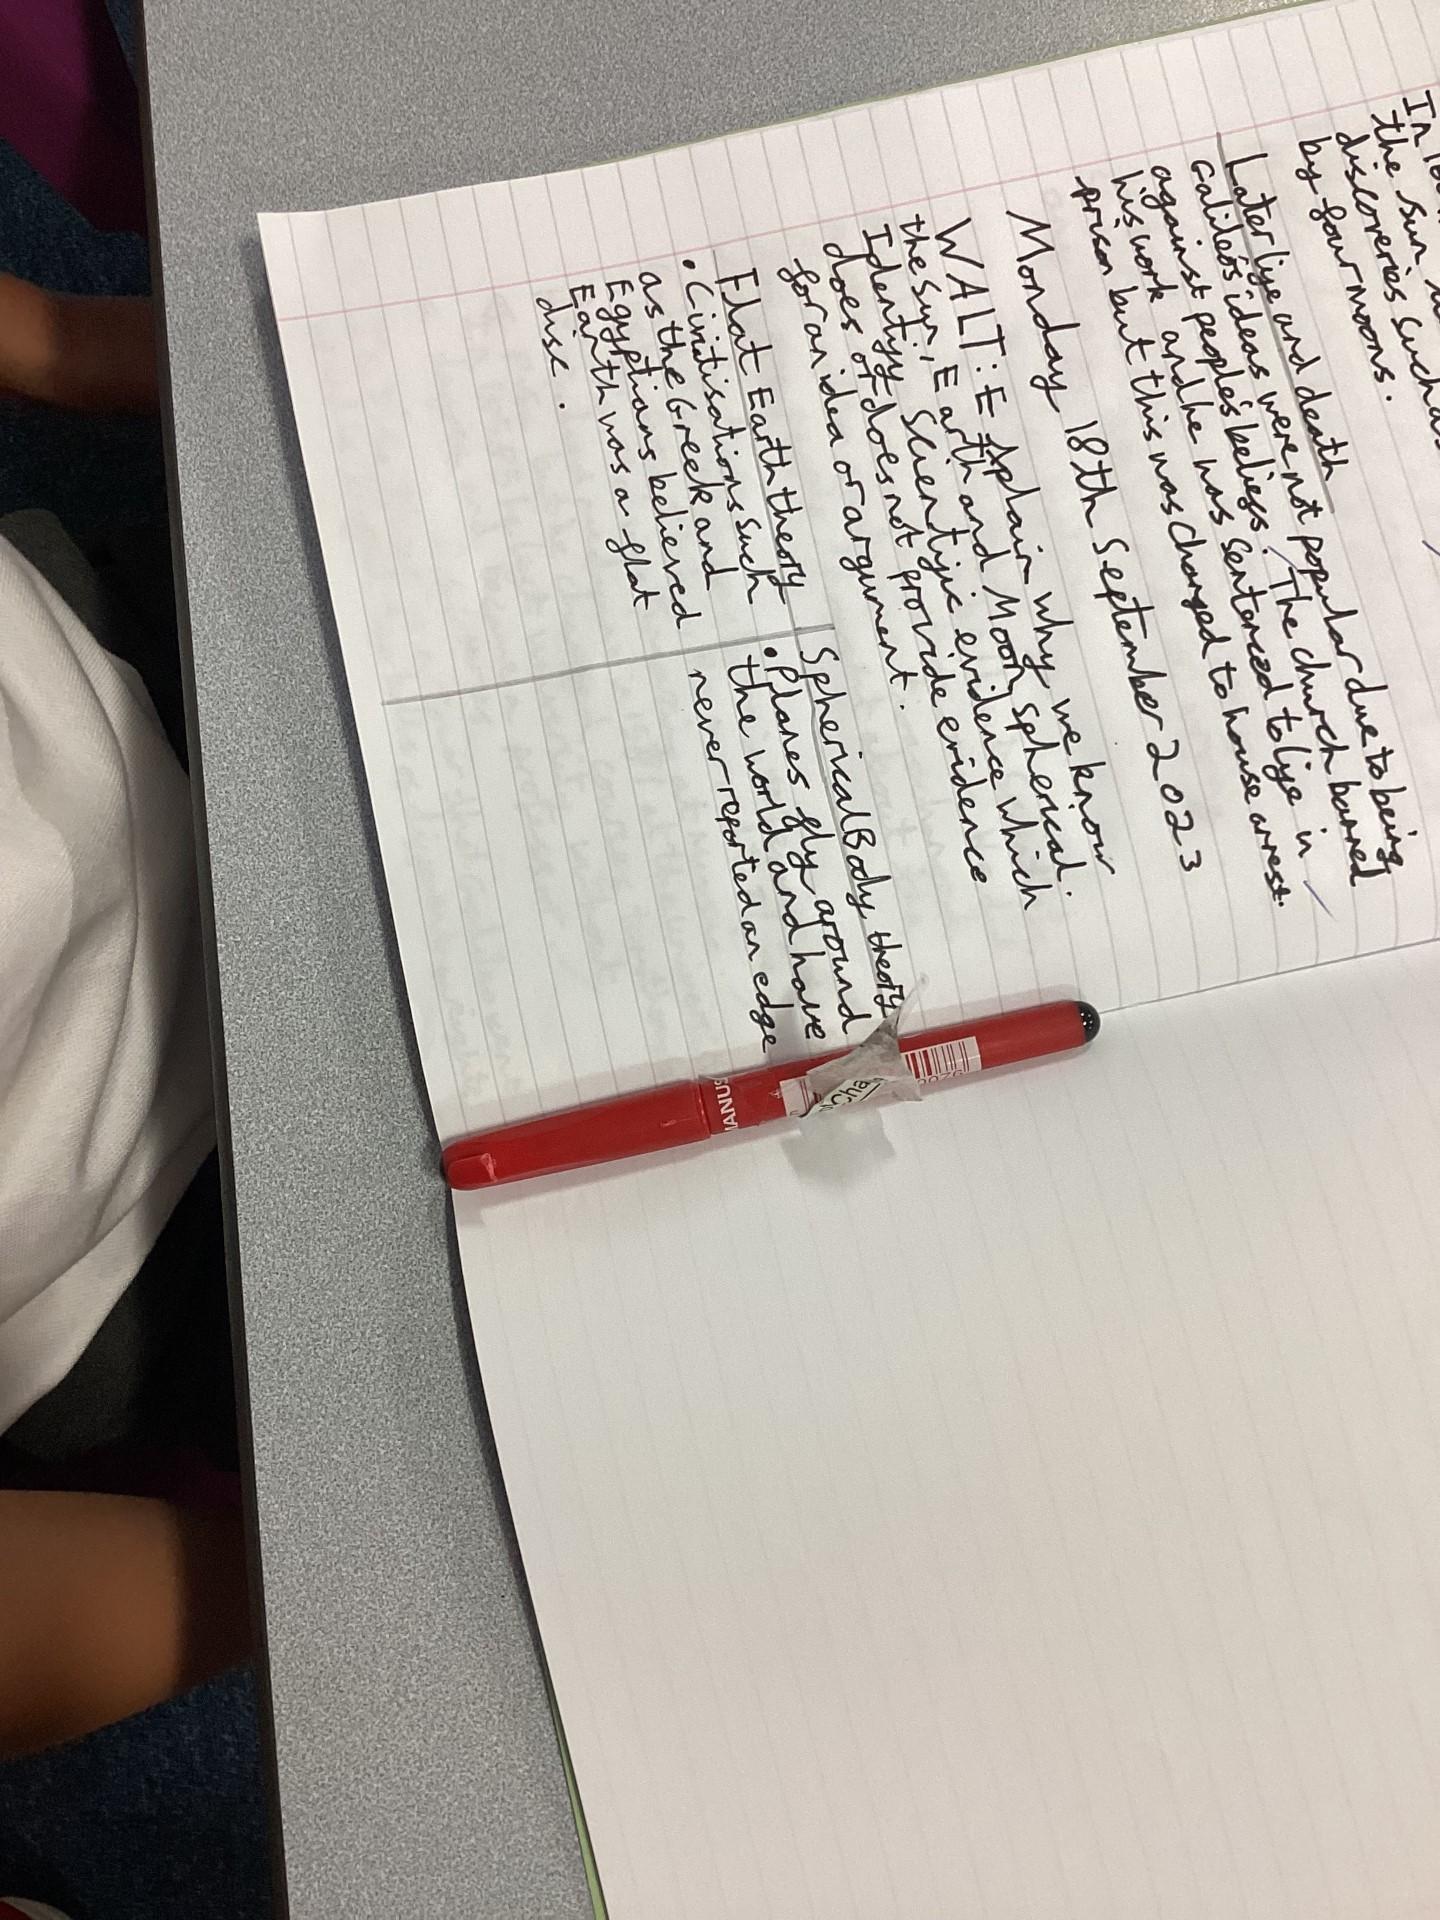 In
the sun
discoveries such as
by four moons.
Later life and death
Galileo's ideas were not popular due to being
against people's beliefs. The church banned
his work and he was sentenced to life in
prison but this was changed to house arrest.
Monday 18th September 2023
WALT: Explain why we know
the Sun, Earth and Moon spherical.
Identify scientific evidence which
does of does not provide evidence
for an idea or argument.
Flat Earth theory
• Civilisations such
as the Greek and
Egyptians believed
Earth was a flat
disc.
Spherical Body theory
• Planes fly around
the world and have
never reported an edge
MANUS